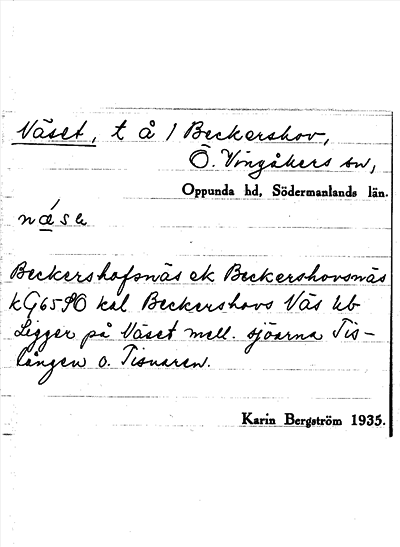 Näset, t å 1 Beckershov,
Ö. Vingåkers sn,
Oppunda hd, Södermanlands län.
næ´se
Beckershofsnäs ek Beckershovsnäs
kG65SO kal Beckershovs Näs hb
Ligger på Näset mell. sjöarna Tis-
lången o. Tisnaren.
Karin Bergström 1935.